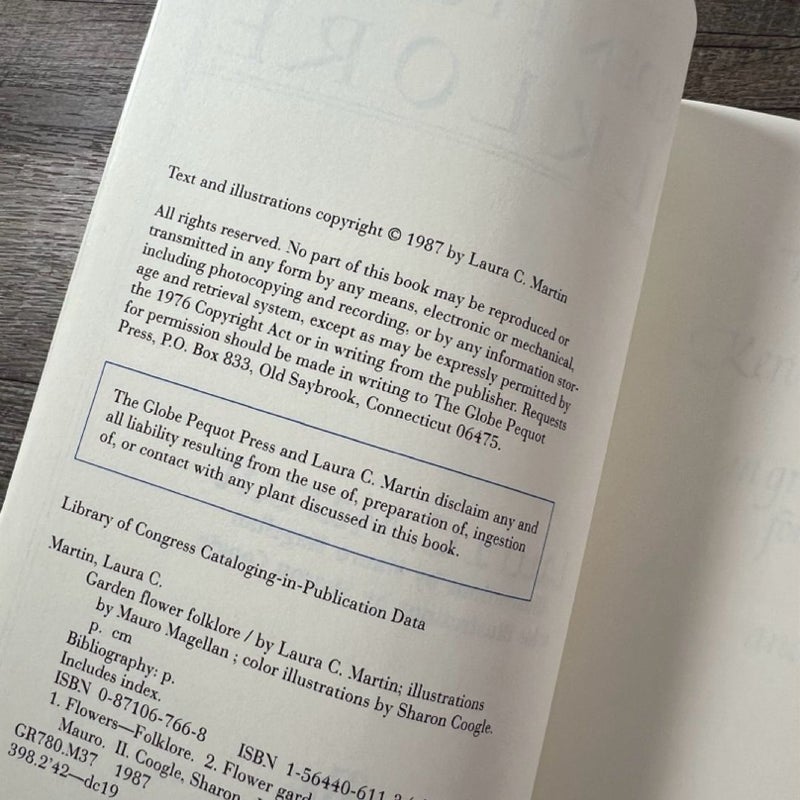 Text and illustrations copyright © 1987 by Laura C. Martin
All rights reserved. No part of this book may be reproduced or
transmitted in any form by any means, electronic or mechanical,
including photocopying and recording, or by any information stor-
age and retrieval system, except as may be expressly permitted by
the 1976 Copyright Act or in writing from the publisher. Requests
for permission should be made in writing to The Globe Pequot
Press, P.O. Box 833, Old Saybrook, Connecticut 06475.
The Globe Pequot Press and Laura C. Martin disclaim any and
all liability resulting from the use of, preparation of, ingestion
of, or contact with any plant discussed in this book.
Library of Congress Cataloging-in-Publication Data
Martin, Laura C.
Garden flower folklore / by Laura C. Martin; illustrations
by Mauro Magellan ; color illustrations by Sharon Coogle.
p. cm
Bibliography: p.
Includes index.
ISBN 0-87106-766-8 ISBN 1-56440-611-
1. Flowers—Folklore. 2. Flower
Mauro. II. Coogle, Sharon.
GR780.M37 1987
398.2'42—dc19